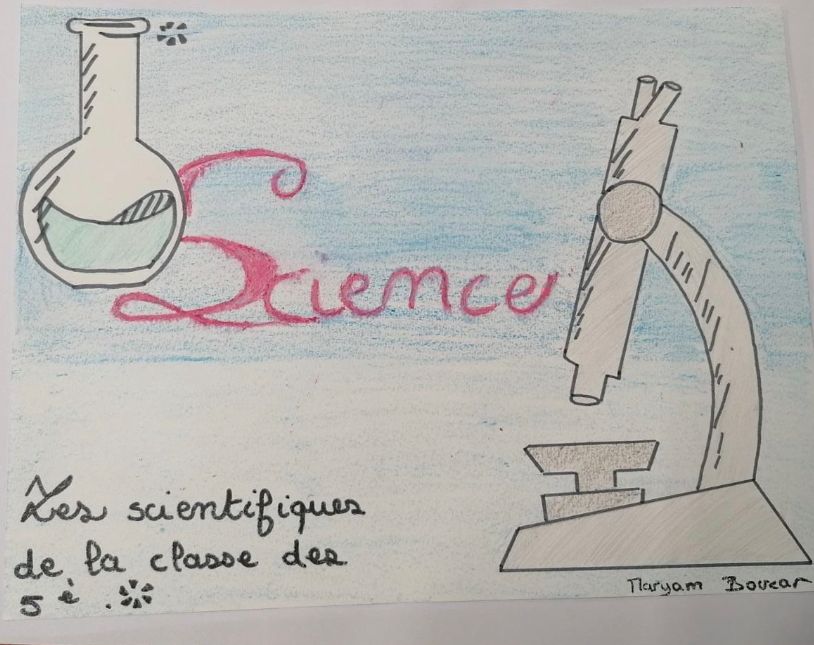 Science
Les scientifiques
de la classe des
5è.
Maryam Boucar